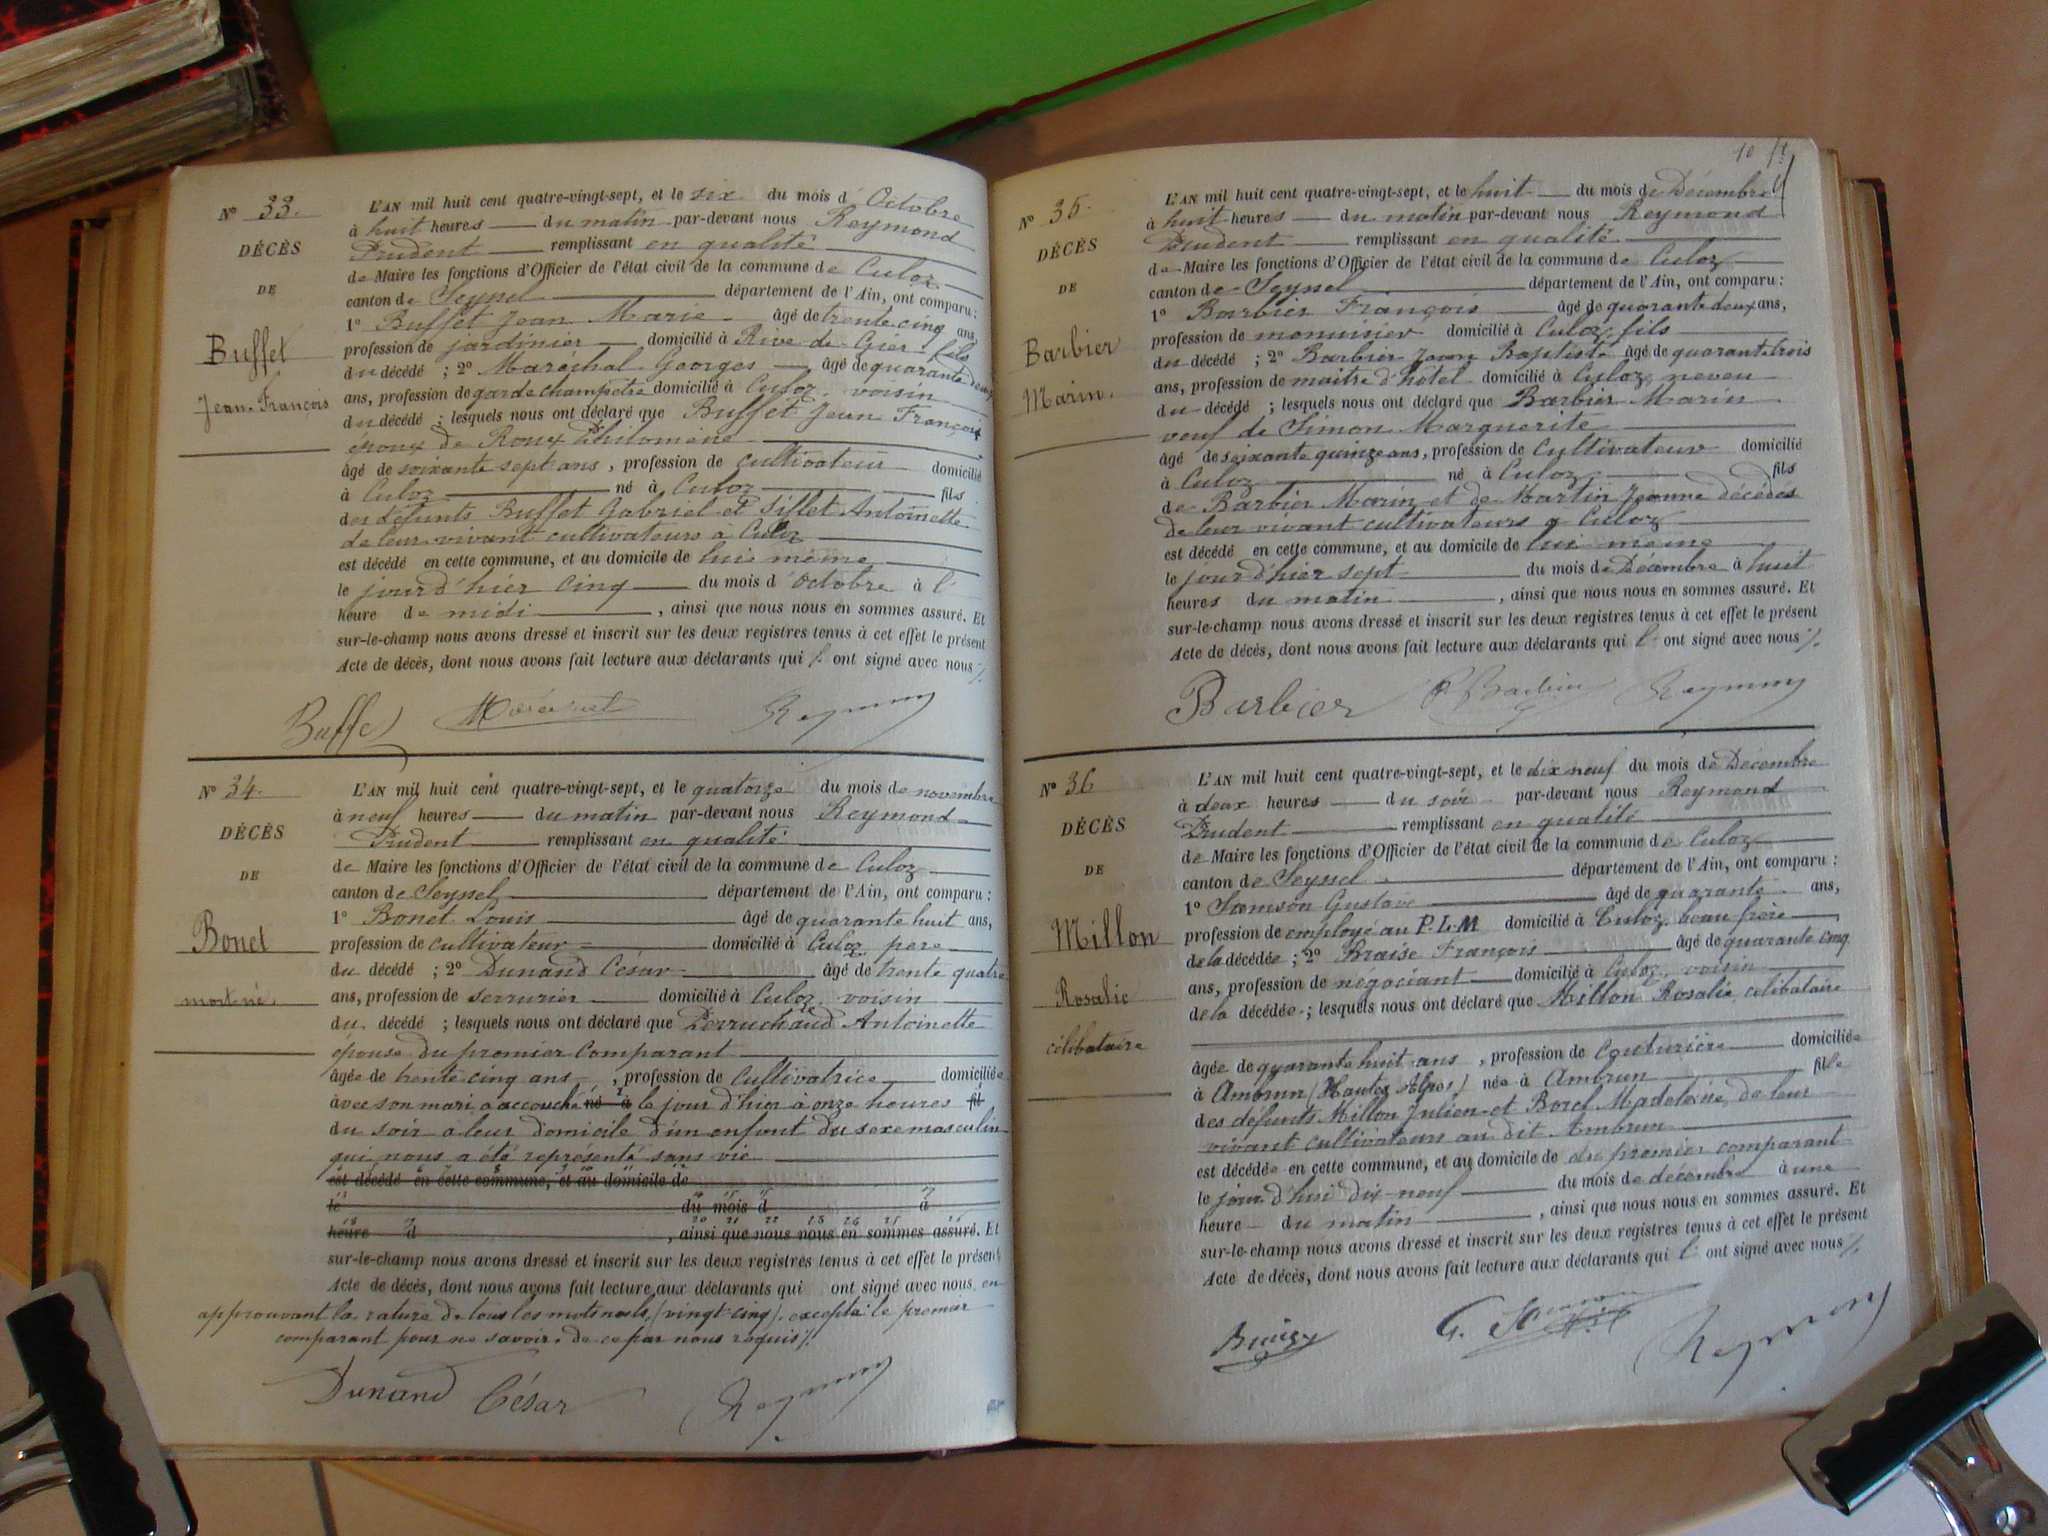 N° 33.
DÉCÈS
DE
Buffet
Jean-François
L'AN mil huit cent quatre-vingt-sept, et le six du mois d'Octobre
à huit heures du matin par-devant nous Reymond
Prudent remplissant en qualité
de Maire les fonctions d'Officier de l'état civil de la commune de Culoz
canton de Seyssel département de l'Ain, ont comparu :
1° Buffet Jean Marie âgé de trente cinq ans,
profession de jardinier domicilié à Rive de Gier fils
du décédé ; 2° Maréchal Georges âgé de quarante deux
ans, profession de garde champêtre domicilié à Culoz, voisin
du décédé ; lesquels nous ont déclaré que Buffet Jean François
époux de Roux Philomène
âgé de soixante sept ans, profession de cultivateur domicilié
à Culoz né à Culoz fils
des défunts Buffet Gabriel et Antoinette
de leur vivant cultivateurs à Culoz
est décédé en cette commune, et au domicile de lui même
le jour d'hier cinq du mois d'Octobre à l'
heure de midi, ainsi que nous nous en sommes assuré. Et
sur-le-champ nous avons dressé et inscrit sur les deux registres tenus à cet effet le présent
Acte de décès, dont nous avons fait lecture aux déclarants qui l' ont signé avec nous %.
Buffet Maréchal Reymond
N° 34.
DÉCÈS
DE
Bonet
mort né.
L'AN mil huit cent quatre-vingt-sept, et le quatorze du mois de novembre
à neuf heures du matin par-devant nous Reymond
Prudent remplissant en qualité
de Maire les fonctions d'Officier de l'état civil de la commune de Culoz
canton de Seyssel département de l'Ain, ont comparu :
1° Bonet Louis âgé de quarante huit ans,
profession de cultivateur domicilié à Culoz père
du décédé ; 2° Dunand César âgé de trente quatre
ans, profession de serrurier domicilié à Culoz, voisin
du décédé ; lesquels nous ont déclaré que Perruchaud Antoinette
épouse du premier comparant
âgée de trente cinq ans, profession de cultivatrice domiciliée
avec son mari a accouché né à le jour d'hier à onze heures fil
du soir à leur domicile d'un enfant du sexe masculin
qui nous a été représenté sans vie
est décédé en cette commune, et au domicile de
le du mois d à
heure d , ainsi que nous nous en sommes assuré. Et
sur-le-champ nous avons dressé et inscrit sur les deux registres tenus à cet effet le présent
Acte de décès, dont nous avons fait lecture aux déclarants qui ont signé avec nous en
approuvant la rature de tous les mots nuls, (vingt-cinq), excepté le premier
comparant pour ne savoir, de ce par nous requis %.
Dunand César Reymond
10
N° 35.
DÉCÈS
DE
Barbier
Marin.
L'AN mil huit cent quatre-vingt-sept, et le huit du mois de Décembre
à huit heures du matin par-devant nous Reymond
Prudent remplissant en qualité
de Maire les fonctions d'Officier de l'état civil de la commune de Culoz
canton de Seyssel département de l'Ain, ont comparu :
1° Barbier François âgé de quarante deux ans,
profession de menuisier domicilié à Culoz, fils
du décédé ; 2° Barbier Jean Baptiste âgé de quarante trois
ans, profession de maître d'hôtel domicilié à Culoz, neveu
du décédé ; lesquels nous ont déclaré que Barbier Marin
veuf de Simon Marguerite
âgé de soixante quinze ans, profession de cultivateur domicilié
à Culoz né à Culoz fils
de Barbier Marin et de Martin Jeanne décédés
de leur vivant cultivateurs à Culoz
est décédé en cette commune, et au domicile de lui même
le jour d'hier sept du mois de Décembre à huit
heures du matin, ainsi que nous nous en sommes assuré. Et
sur-le-champ nous avons dressé et inscrit sur les deux registres tenus à cet effet le présent
Acte de décès, dont nous avons fait lecture aux déclarants qui l' ont signé avec nous %.
Barbier Barbier Reymond
N° 36
DÉCÈS
DE
Millon
Rosalie
célibataire
L'AN mil huit cent quatre-vingt-sept, et le dix neuf du mois de Décembre
à deux heures du soir par-devant nous Reymond
Prudent remplissant en qualité
de Maire les fonctions d'Officier de l'état civil de la commune de Culoz
canton de Seyssel département de l'Ain, ont comparu :
1° Samson Gustave âgé de quarante ans,
profession de employé au P.L.M domicilié à Culoz, beau frère
de la décédée ; 2° Braise François âgé de quarante cinq
ans, profession de négociant domicilié à Culoz, voisin
de la décédée ; lesquels nous ont déclaré que Millon Rosalie célibataire
âgée de quarante huit ans, profession de couturière domiciliée
à Ambrun (Hautes Alpes) née à Ambrun fille
des défunts Millon Julien et Borel Madeleine, de leur
vivant cultivateurs au dit Ambrun
est décédée en cette commune, et au domicile du premier comparant
le jour d'hui dix-neuf du mois de décembre à une
heure du matin, ainsi que nous nous en sommes assuré. Et
sur-le-champ nous avons dressé et inscrit sur les deux registres tenus à cet effet le présent
Acte de décès, dont nous avons fait lecture aux déclarants qui l' ont signé avec nous %.
G. Reymond